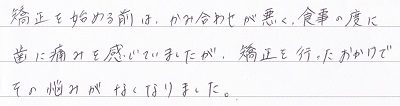 矯正を始める前は、かみ合わせが悪く、食事の度に
歯に痛みを感じていましたが、矯正を行ったおかげで
その悩みがなくなりました。